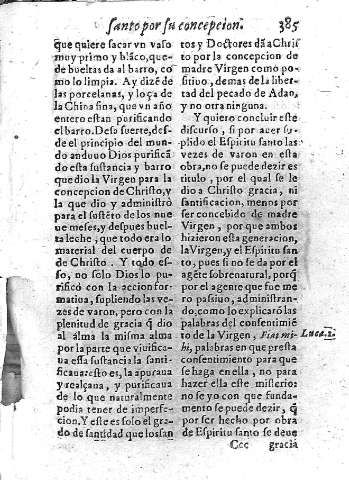 santo por su concepcion. 385
que quiere sacar vn vaso
muy primo y blãco, que
de bueltas da al barro, co
mo lo limpia. Ay dizẽ de
las porcelanas, y loça de
la China fina, que vn año
entero estan purificando
el barro. Desta suerte, des
de el principio del mun
do anduuo Dios purificã
do esta sustancia y barro
que dio la Virgen para la
concepcion de Christo, y
la que dio y administrò
para el sustẽto de los nue
ue meses, y despues buel
ta leche, que todo era lo
material del cuerpo de
de Christo. Y todo es-
so, no solo Dios lo pu-
rificò con la accion for-
matiua, supliendo las ve-
zes de varon, pero con la
plenitud de gracia q̃ dio
al alma la misma alma
por la parte que viuifica-
ua essa sustancia la santi-
ficaua: esto es, la apuraua
y realçaua, y purificaua
de lo que naturalmente
podia tener de imperfe-
cion. Y este es solo el gra-
do de santidad que los san
tos y Doctores dã a Chris
to por la concepcion de
madre Virgen como po-
sitiuo, demas de la liber-
tad del pecado de Adan,
y no otra ninguna.
Y quiero concluir este
discurso, si por auer su-
plido el Espiritu santo las
vezes de varon en esta
obra, no se puede dezir es
titulo, por el qual se le
dio a Christo gracia, ni
santificacion, menos por
ser concebido de madre
Virgen, por que ambos
hizieron esta generacion,
la Virgen, y el Espiritu san
to, pues si no se da por el
agẽte sobrenatural, porq̃
por el agente que fue me
ro passiuo, administran-
do, como lo explicarõ las
palabras del consentimiẽ
to de la Virgen, Fiat mi- Luca. 1.
hi, palabras en que presta
consentimiento para que
se haga en ella, no para
hazer ella este misterio:
no se yo con que funda-
mento se puede dezir, q̃
por ser hecho por obra
de Espiritu santo se deue
Ccc gracia